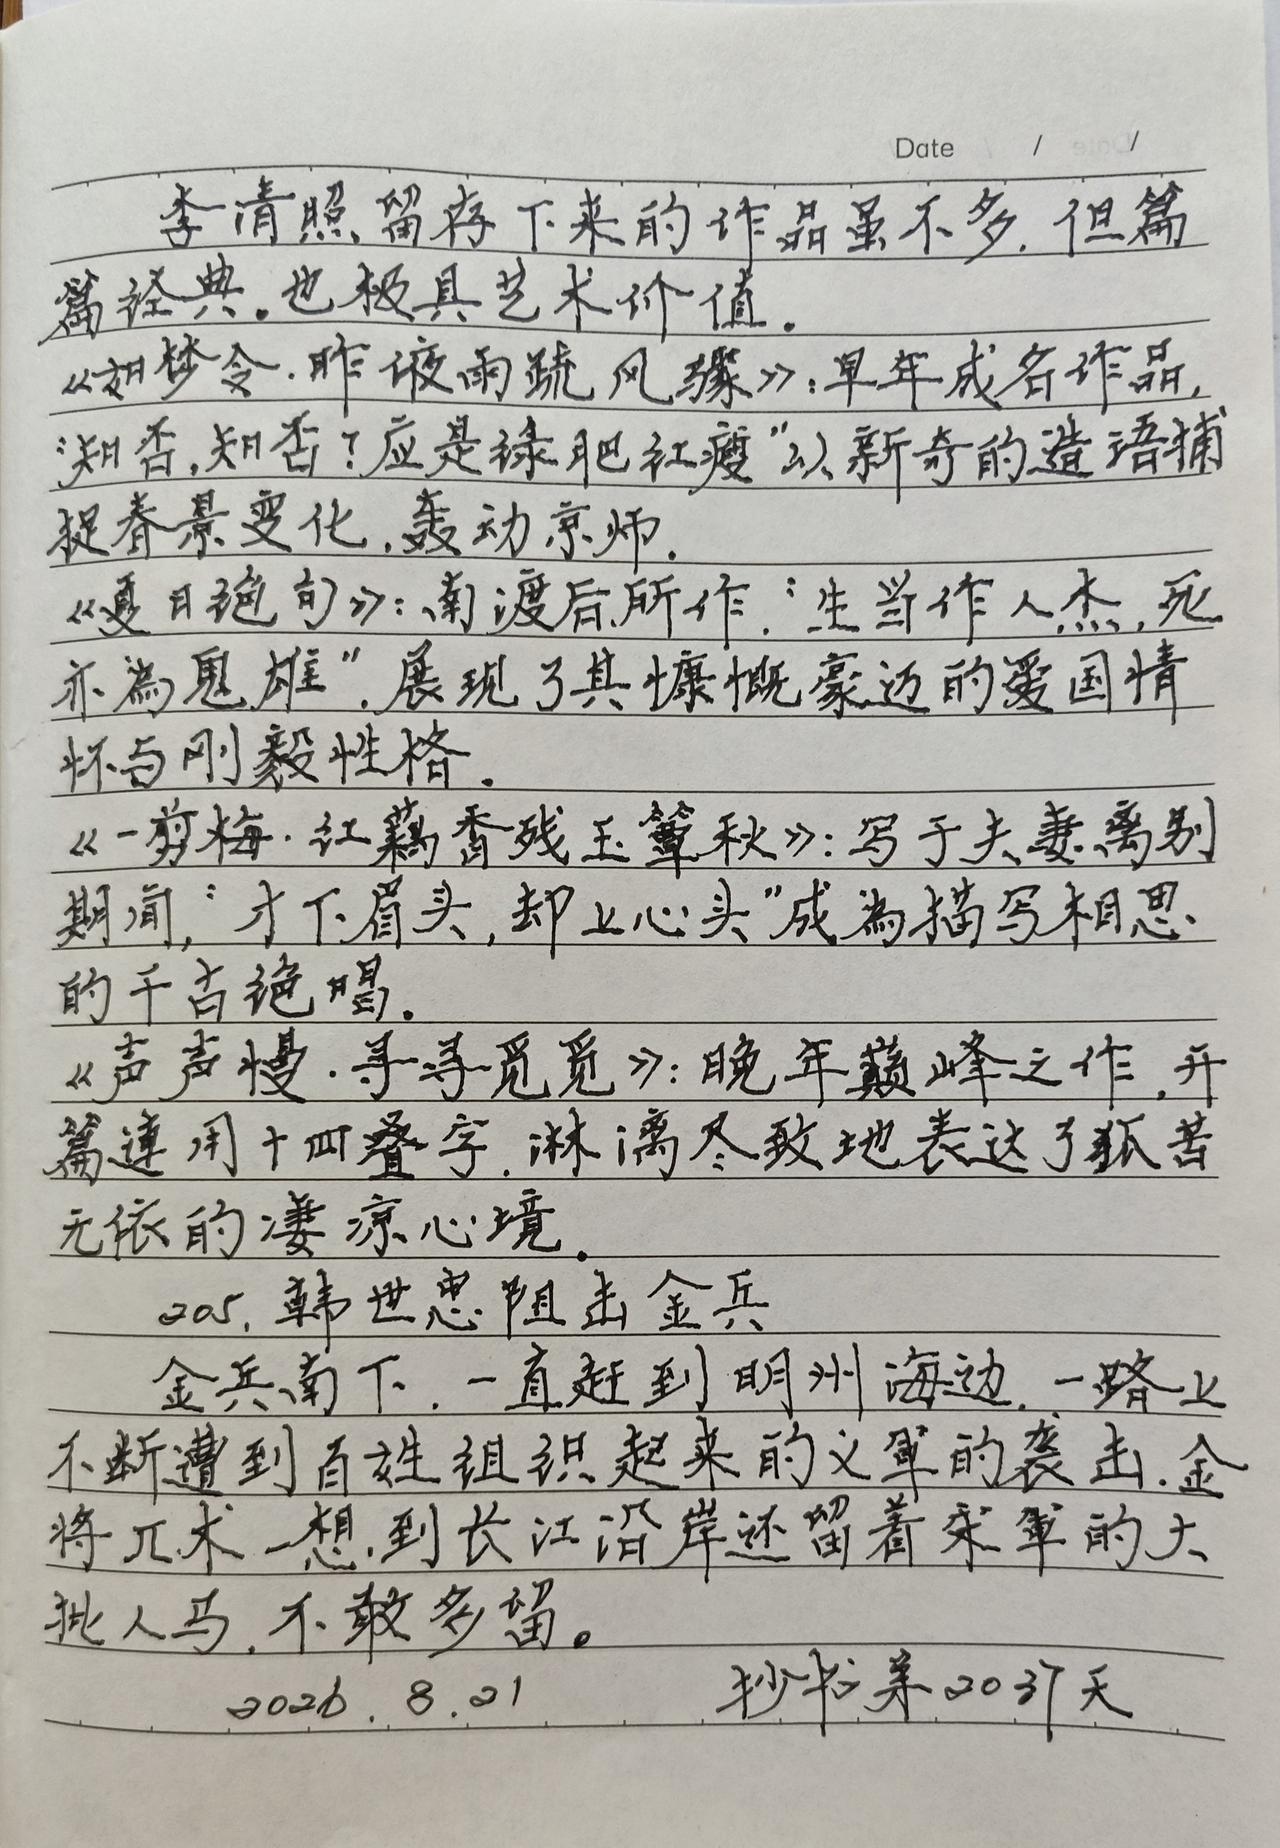 Date / /
李清照留存下来的作品虽不多，但篇
篇经典。也极具艺术价值.
《如梦令·昨夜雨疏风骤》：早年成名作品，
“知否，知否？应是绿肥红瘦”以新奇的造语捕
捉春景变化，轰动京师.
《夏日绝句》：南渡后所作，“生当作人杰，死
亦為鬼雄”，展现了其慷慨豪迈的爱国情
怀与刚毅性格.
《一剪梅·红藕香残玉簟秋》：写于夫妻离别
期间，“才下眉头，却上心头”成為描写相思
的千古绝唱.
《声声慢·寻寻觅觅》：晚年巅峰之作，开
篇連用十四叠字，淋漓尽致地表达了孤苦
无依的凄凉心境.
205. 韩世忠阻击金兵
金兵南下，一直赶到明州海边，一路上
不断遭到百姓组织起来的义軍的袭击.金
将兀术一想到长江沿岸还留着宋軍的大
批人马，不敢多留。
2026.8.21 抄书第2037天